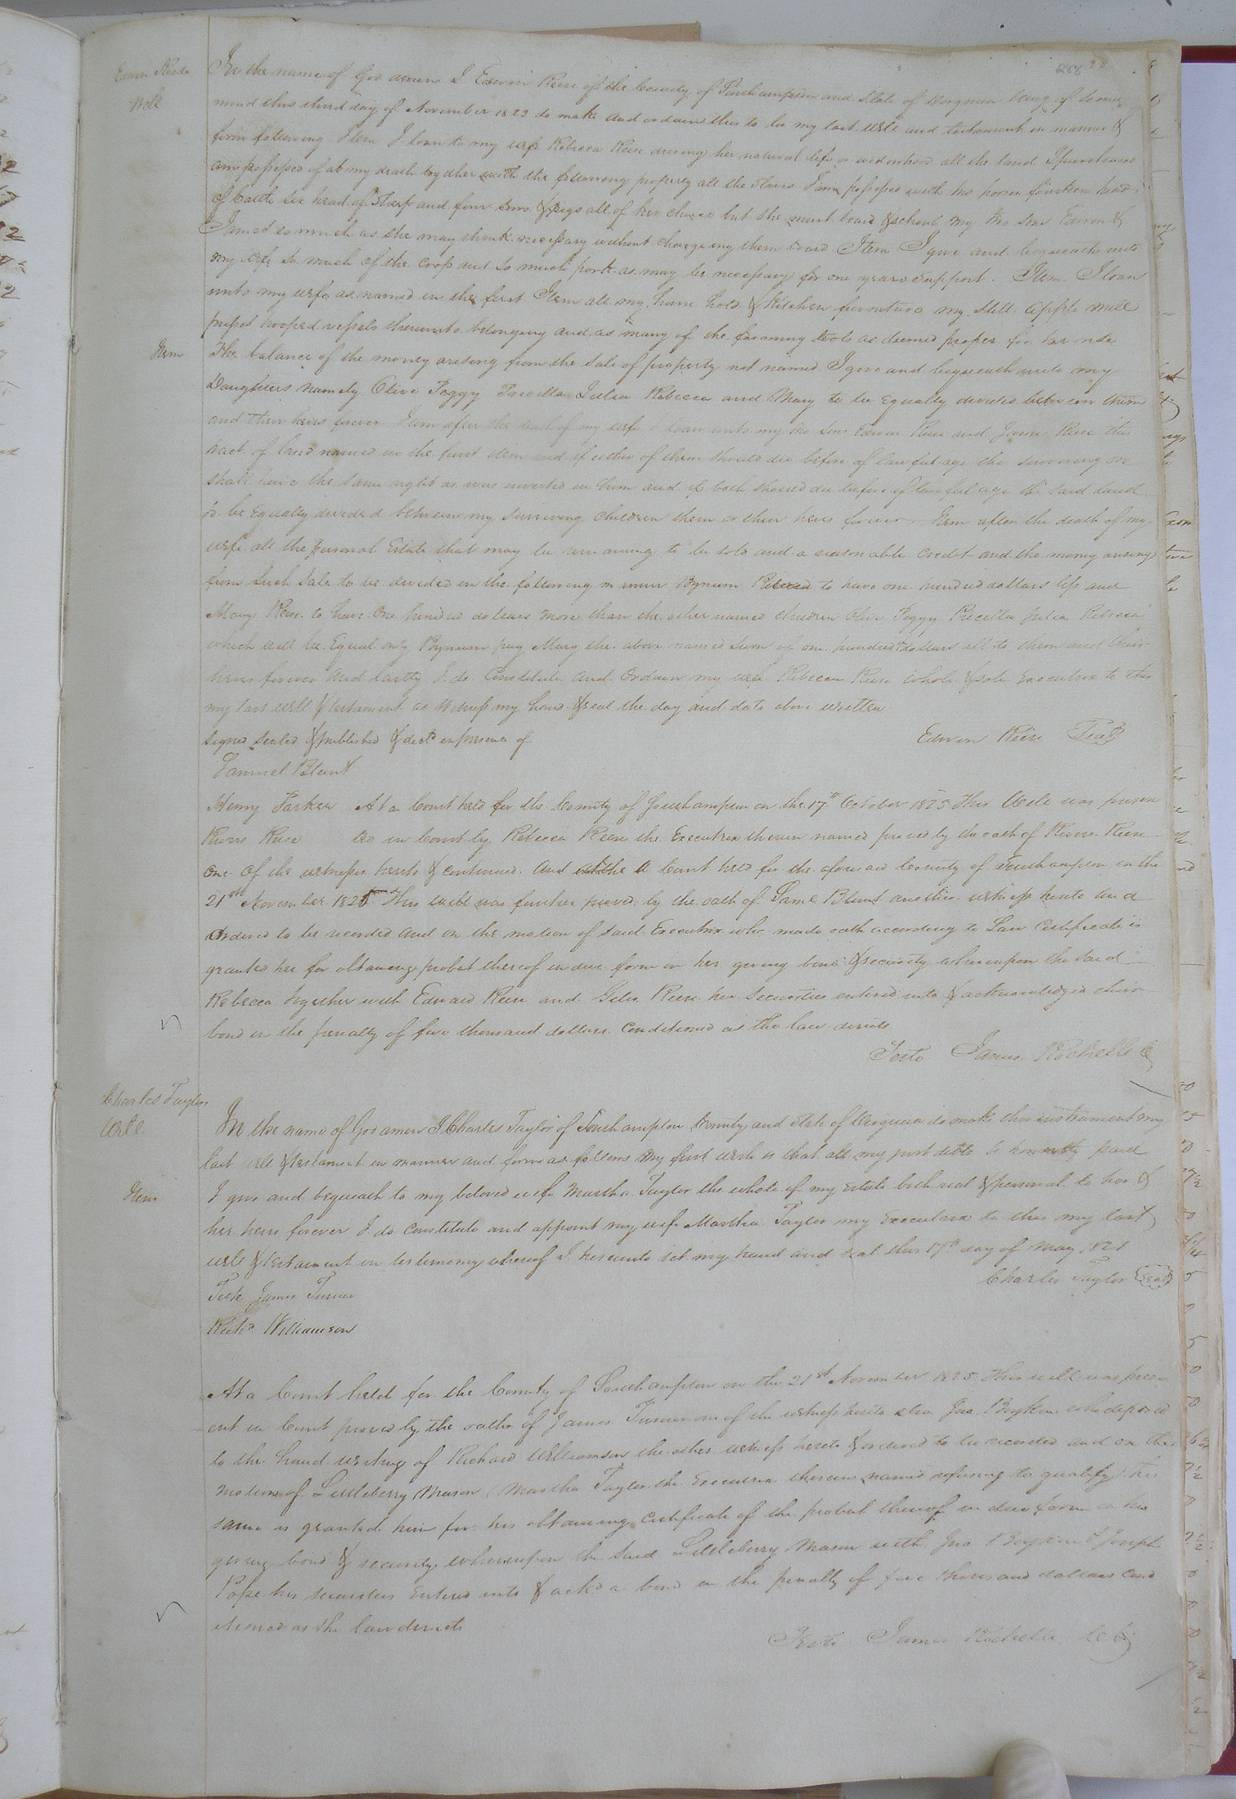 Edwin Reese
Will
In the name of God amen I Edwin Reese of the County of Southampton and State of Virginia being of sound
mind this third day of November 1823 do make and ordain this to be my last Will and testament in manner &
form following Item I loan to my wife Rebecca Reese during her natural life or widowhood all the land I
am possessed of at my death together with the following property all the Slaves I am possessed with two horses fourteen head
of Cattle six head of Sheep and four Sows & pigs all of her choice but she must board & school my two sons Edwin &
James so much as she may think necessary without charging them board Item I give and bequeath unto
my wife so much of the crop and so much pork as may be necessary for one years support. Item I loan
unto my wife as named in the first Item all my house hold & Kitchen furniture my Still apple mill
press hooped vessels thereunto belonging and as many of the farming tools as deemed proper for her use
Item The balance of the money arising from the sale of property not named I give and bequeath unto my
Daughters namely Olive Peggy Priscilla Julia Rebecca and Mary to be equally divided between them
and their heirs forever Item after the death of my wife I loan unto my two sons Edwin Reese and James Reese the
tract of land named in the first Item and if either of them should die before of lawful age the surviving one
shall have the same right as was invested in them and if both should die before of lawful age the said land
to be Equally divided between my surviving children them or their heirs forever Item after the death of my
wife all the personal Estate that may be remaining to be sold and a reasonable credit and the money arising
from such sale to be divided in the following manner Bynum to have one hundred dollars less and
Mary Reese to have One hundred dollars more than the other named children Olive Peggy Priscilla Julia Rebecca
which will be Equal only Bynum pay Mary the above named sum of one hundred dollars all to them and their
heirs forever And lastly I do Constitute and Ordain my wife Rebecca Reese whole & sole Executrix to this
my last will & testament as witness my hand & seal the day and date above written
Signed sealed & published & decd in presence of Edwin Reese Seal
Samuel Blunt
Henry Parker At a Court held for the County of Southampton on the 17th October 1825 This Will was presen
Rivers Reese ted in Court by Rebecca Reese the Executrix therein named proved by the oath of Rivers Reese
one of the witnesses hereto & continued. And at a Court held for the aforesaid County of Southampton on the
21st November 1825 This will was further proved by the oath of Saml Blunt another witness hereto and
Ordered to be recorded and on the motion of said Executrix who made oath according to Law Certificate is
granted her for obtaining probat thereof in due form on her giving bond & security whereupon the said
Rebecca together with Edward Reese and Giles Reese her Securities entered into & acknowledged their
bond in the penalty of five thousand dollars Conditioned as the law directs
Teste James Rochelle C
Charles Taylor
Will
In the name of God amen I Charles Taylor of Southampton County and State of Virginia do make this instrument my
last will & testament in manner and form as follows My first wish is that all my just debts be honestly paid
Item I give and bequeath to my beloved wife Martha Taylor the whole of my Estate both real & personal to her &
her heirs forever I do constitute and appoint my wife Martha Taylor my Executrix to this my last
will & testament in testimony whereof I hereunto set my hand and seal this 17th day of May 1821
Teste James Turner Charles Taylor Seal
Richd Williamson
At a Court held for the County of Southampton on the 21st November 1825 This will was pres
ent in Court proved by the oath of James Turner one of the witness hereto also Jno Boykin who deposed
to the hand writing of Richard Williamson the other witness hereto & ordered to be recorded and on the
motion of Littleberry Mason (Martha Taylor the Executrix therein named refusing to qualify) the
same is granted him for his obtaining Certificate of the probat thereof in due form on his
giving bond & security whereupon the said Littleberry Mason with Jno Boykin & Joseph
Pope his securities Entered into & ackd a bond in the penalty of five thousand dollars Cond
itioned as the law directs
Teste James Rochelle